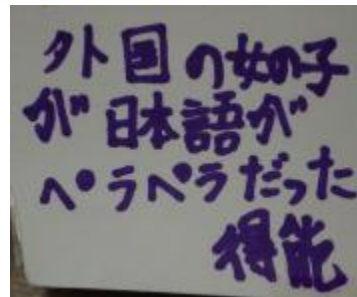 外国の女の子
が日本語が
ペラペラだった
得能